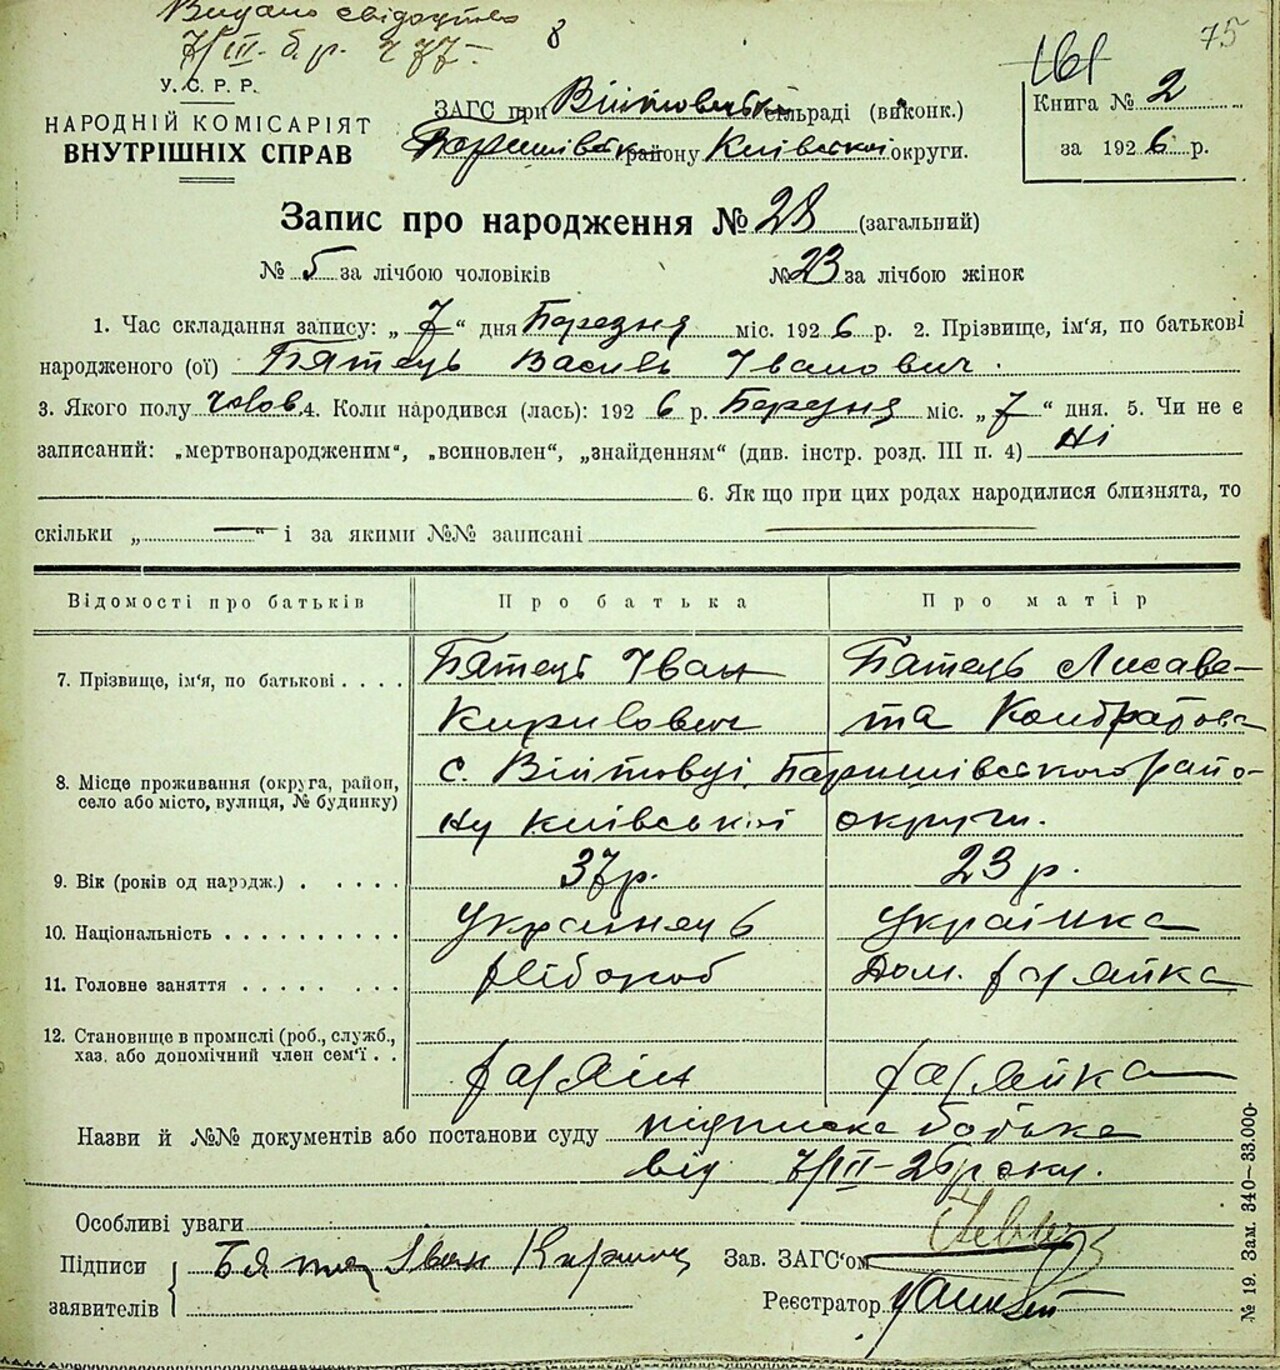 Видано свідоцтво
7/III б.р. 277.
8
75
161
У. С. Р. Р.
НАРОДНІЙ КОМІСАРІЯТ
ВНУТРІШНІХ СПРАВ
ЗАГС при Війтовецькій сільраді (виконк.)
Баришівськ. району Київської округи.
Книга № 2
за 1926 р.
Запис про народження № 28 (загальний)
№ 5 за лічбою чоловіків № 23 за лічбою жінок
1. Час складання запису: „7“ дня Березня міс. 1926 р. 2. Прізвище, ім'я, по батькові
народженого (ої) Бятець Василь Іванович.
3. Якого полу чолов. 4. Коли народився (лась): 1926 р. Березня міс. „7“ дня. 5. Чи не є
записаний: „мертвонародженим“, „всиновлен“, „знайденням“ (див. інстр. розд. III п. 4) Ні
6. Як що при цих родах народилися близнята, то
скільки „—“ і за якими №№ записані —
Відомості про батьків Про батька Про матір
7. Прізвище, ім'я, по батькові . . . . Бятець Іван Бятець Лисаве-
Кирилович та Кондратовна
8. Місце проживання (округа, район, село або місто, вулиця, № будинку) с. Війтовці Баришівського райо-
ну Київської округи.
9. Вік (років од народж.) . . . . . 37 р. 23 р.
10. Національність . . . . . . . . . . Українець Українка
11. Головне заняття . . . . . . . . . хлібороб Дом. хазяйка
12. Становище в промислі (роб., служб.,
хаз. або допомічний член сем'ї . . хазяїн хазяйка
Назви й №№ документів або постанови суду підписка батька
від 7/III-26 року.
Особливі уваги
Підписи заявителів Бятець Іван Зав. ЗАГС'ом
Реєстратор
№ 19. Зам. 340—33.000